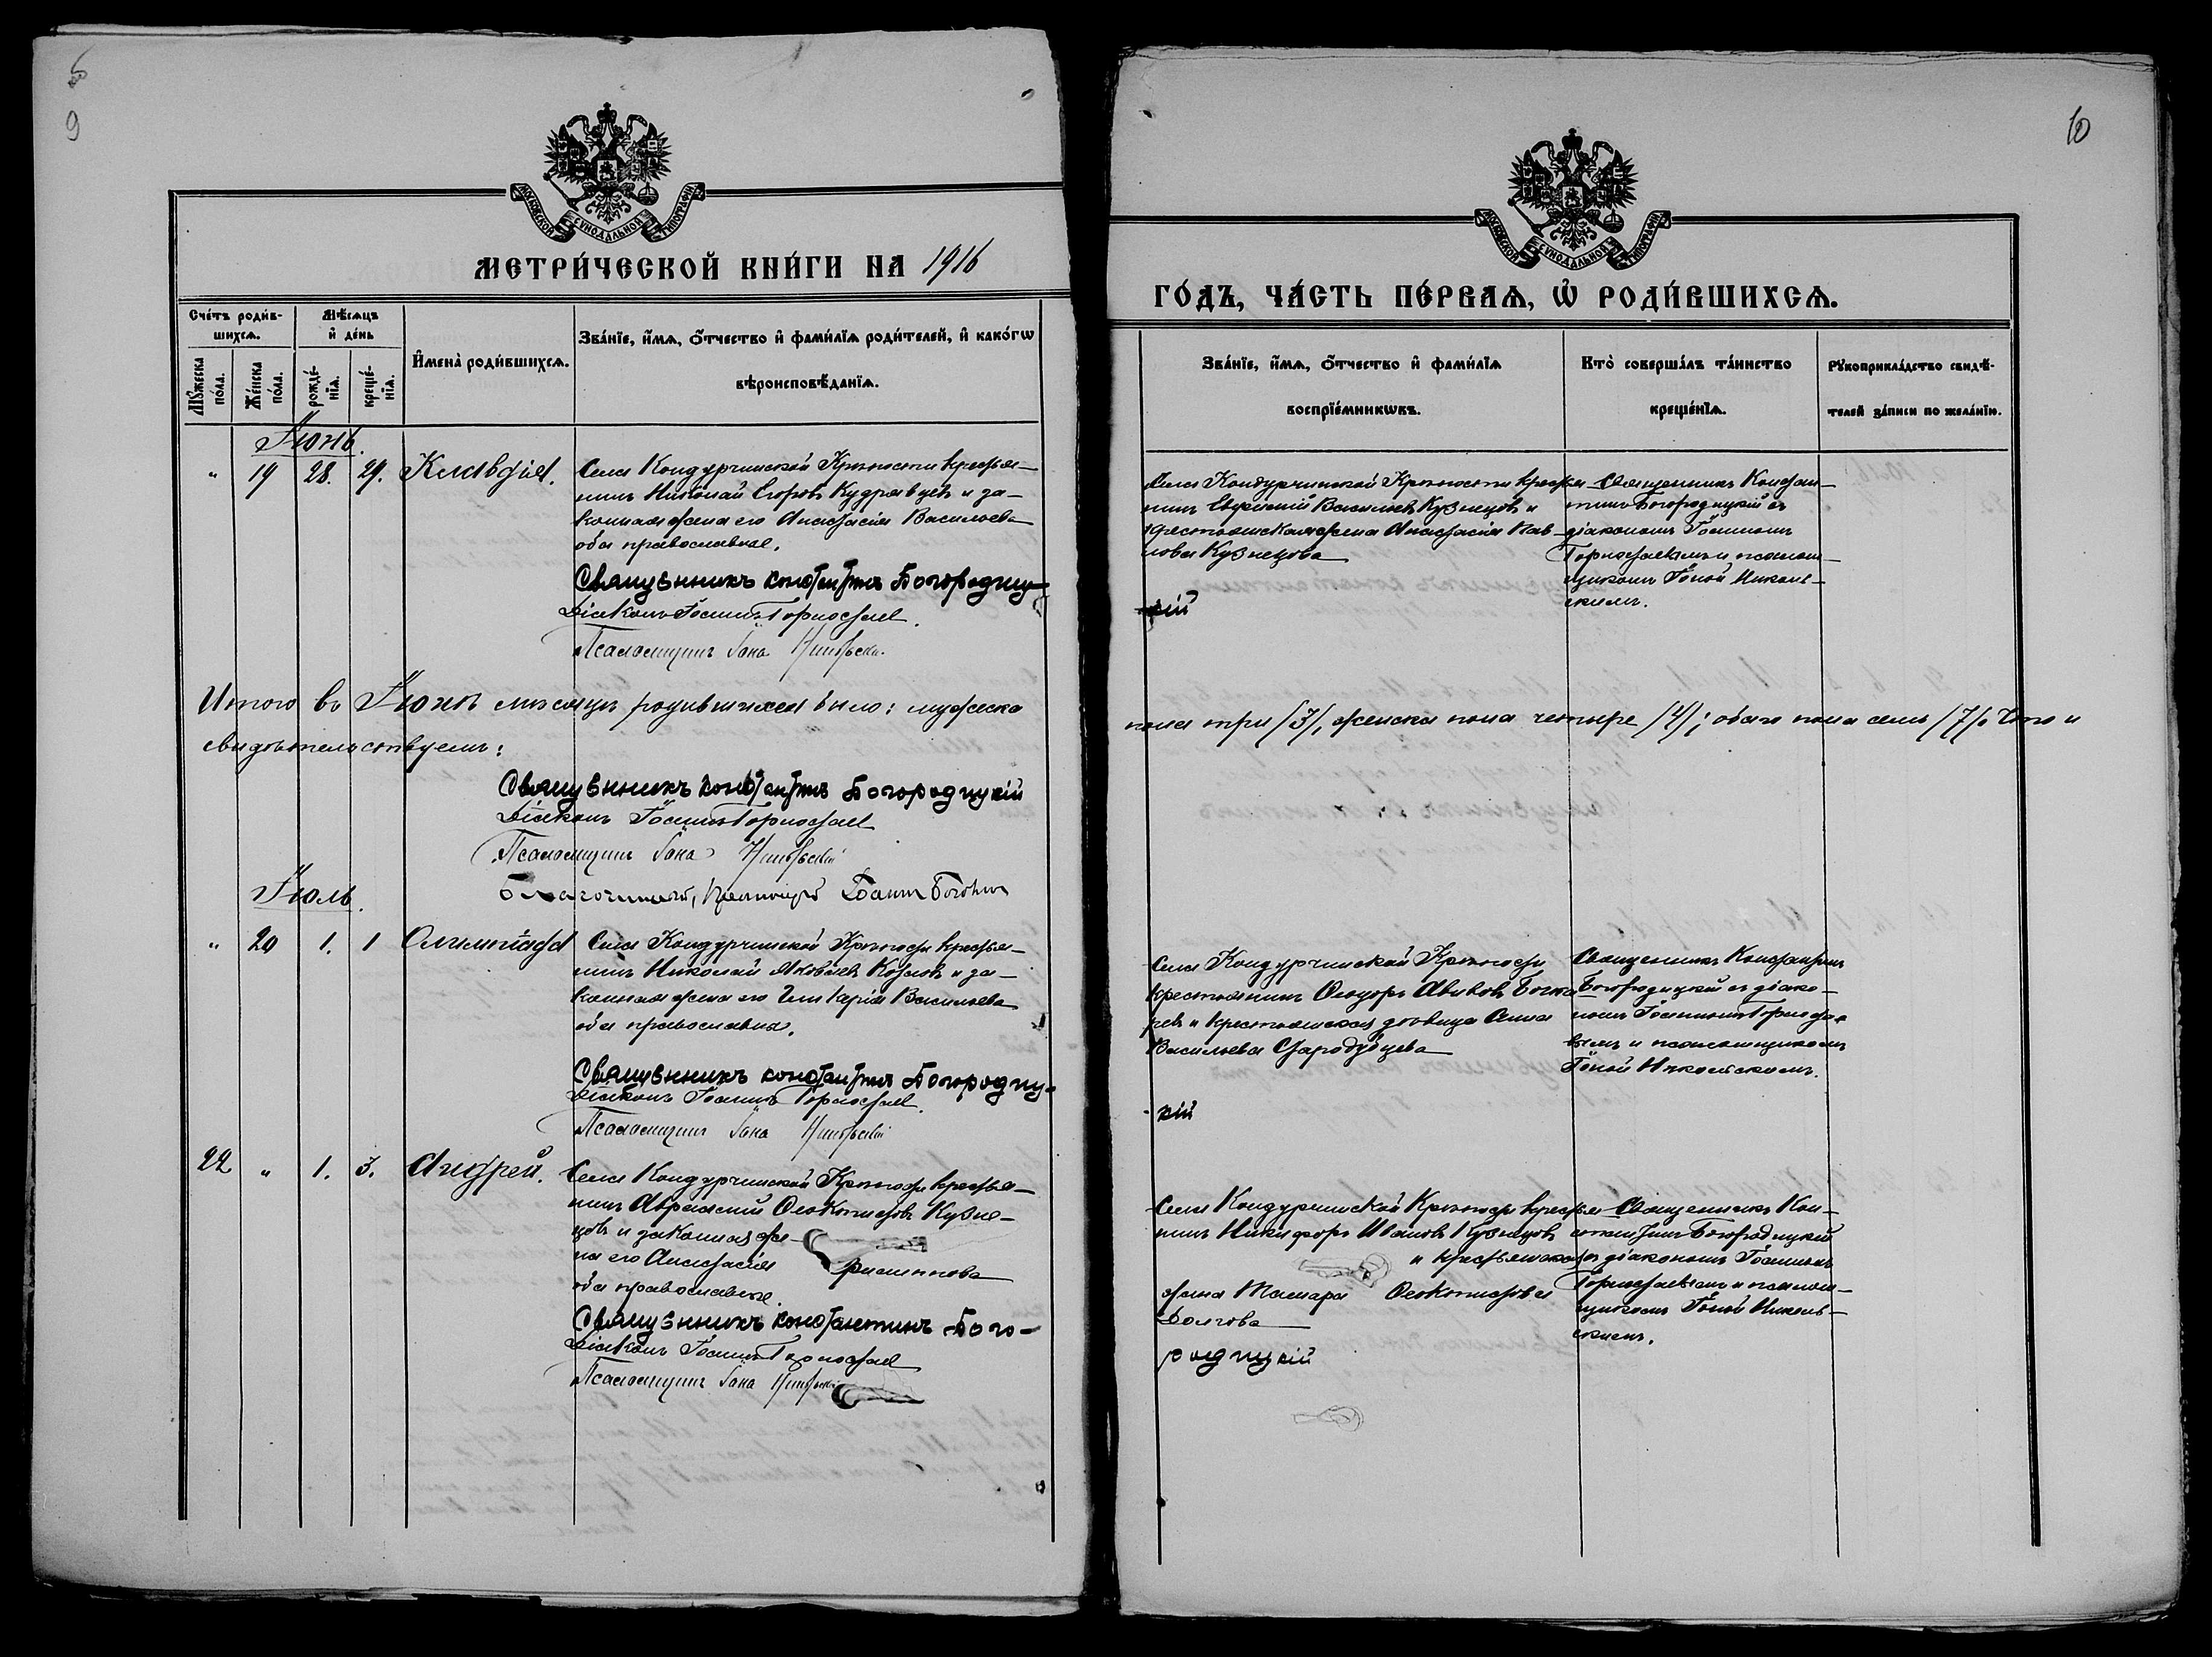 9
МОСКОВСКОЙ СУНОДАЛЬНОЙ ТИПОГРАФІИ
МЕТРИ́ЧЕСКОЙ КНИ́ГИ НА 1916
Сче́тъ роди́в-
шихсѧ.
Мѣ́сѧцъ
и҆ де́нь
Мꙋ́жеска
по́ла.
Же́нска
по́ла.
рожде́-
нїѧ.
креще́-
нїѧ.
И҆мена̀ роди́вшихсѧ.
Зва́нїе, и҆́мѧ, ѻ҆́тчество и҆ фами́лїѧ роди́телей, и҆ како́гѡ
вѣроисповѣ́данїѧ.
Іюнь.
" 19 28. 29. Клавдія.
Села Кондурчинской Крѣпости крестья-
нинъ Николай Егоровъ Кудрявцевъ и за-
конная жена его Анастасія Васильева
оба православные.
Священникъ Константинъ Богородиц-
Діаконъ Іоаннъ Горностаев
Псаломщикъ Іона Никольскій
Итого въ Іюнѣ мѣсяцѣ родившихся было: мужеска
свидѣтельствуемъ:
Священникъ Константинъ Богородицкій
Діаконъ Іоаннъ Горностаев
Псаломщикъ Іона Никольскій
Благочинный, Іоаннъ
Іюль.
" 20 1. 1 Олимпіада
Села Кондурчинской Крѣпости крестья-
нинъ Николай Яковлевъ Козловъ и за-
конная жена его Гликерія Васильева
оба православна.
Священникъ Константинъ Богородиц-
Діаконъ Іоаннъ Горностаев
Псаломщикъ Іона Никольскій
22 " 1. 3. Андрей.
Села Кондурчинской Крѣпости крестья-
нинъ Авраамий Феоктистовъ Кузне-
цовъ и законная же-
на его Анастасія Филиппова
оба православные.
Священникъ Константинъ Бого-
Діаконъ Іоаннъ Горностаев
Псаломщикъ Іона Никольскій
10
МОСКОВСКОЙ СУНОДАЛЬНОЙ ТИПОГРАФІИ
ГО́ДЪ, ЧА́СТЬ ПЕ́РВАѦ, Ѡ҆ РОДИ́ВШИХСѦ.
Зва́нїе, и҆́мѧ, ѻ҆́тчество и҆ фами́лїѧ
воспрїе́мникѡвъ.
Кто̀ соверша́лъ та́инство
креще́нїѧ.
Рꙋкоприкла́дство свидѣ́-
телей за́писи по жела́нїю.
Села Кондурчинской Крѣпости крестья-
нинъ Евфимій Васильевъ Кузнецовъ и
крестьянская жена Анастасія Пав-
лова Кузнецова
Священникъ Констан-
тинъ Богородицкій съ
діакономъ Іоанномъ
Горностаевымъ и псалом-
щикомъ Іоной Николь-
скимъ.
кій
пола три /3/, женска пола четыре /4/; обоего пола семь /7/. Что и
Села Кондурчинской Крѣпости
крестьянинъ Феодоръ Авивовъ Бочка-
ревъ и крестьянская дѣвица Анна
Васильева Стародубцева
Священникъ Константинъ
Богородицкій съ діако-
номъ Іоанномъ Горноста-
евымъ и псаломщикомъ
Іоной Никольскимъ.
кій
Села Кондурчинской Крѣпости крестья-
нинъ Никифоръ Ивановъ Кузнецовъ
и крестьянская
жена Тамара Феоктистова
Долгова
Священникъ Кон-
стантинъ Богородицкій
съ діакономъ Іоанномъ
Горностаевымъ и псалом-
щикомъ Іоной Николь-
скимъ.
родицкій